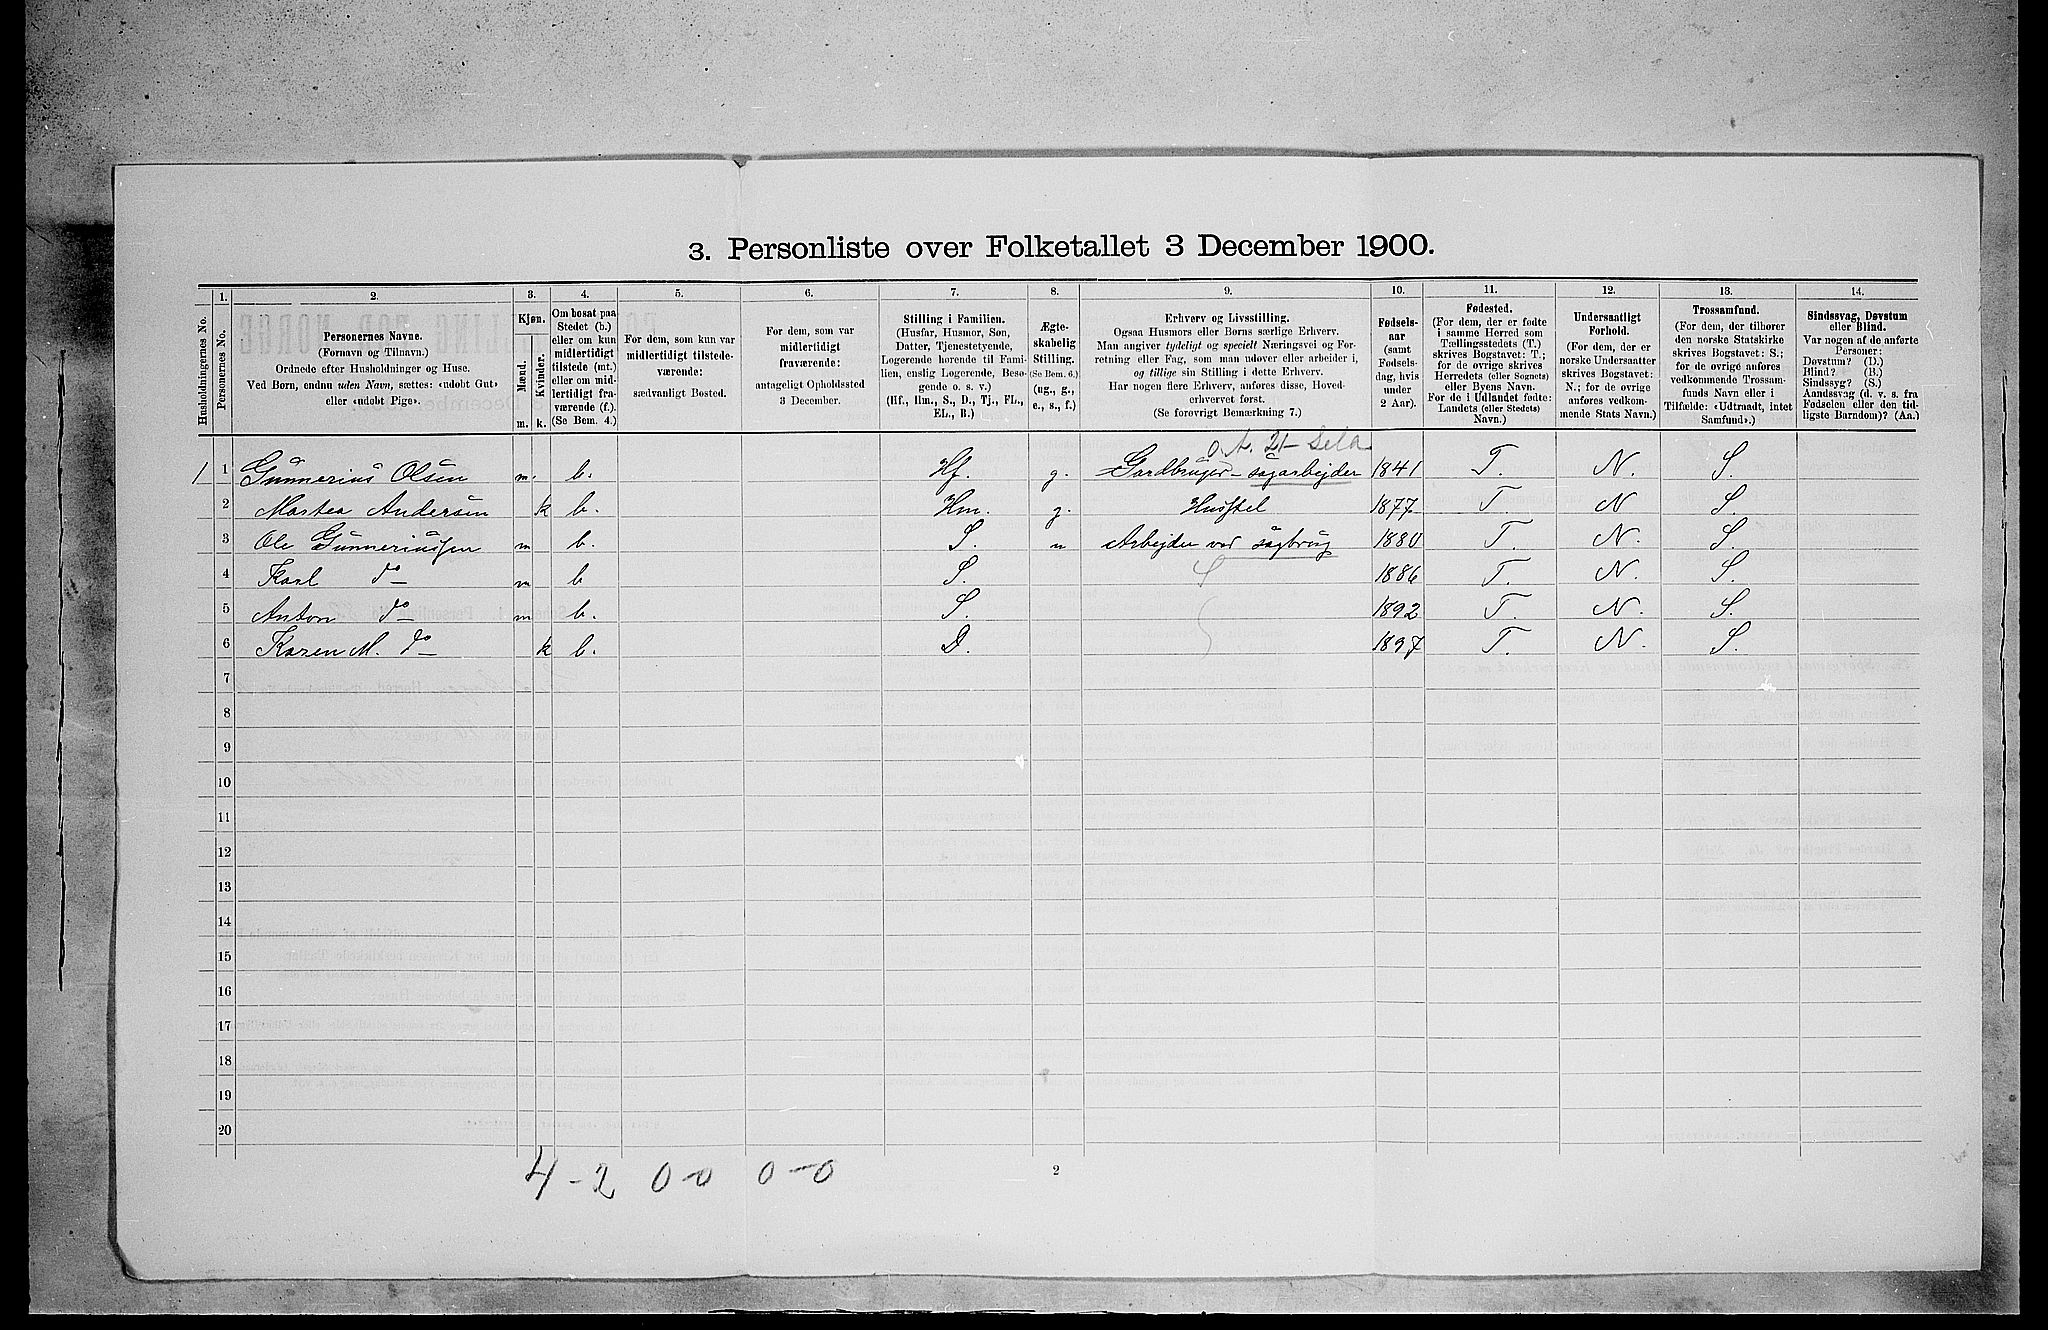 3. Personliste over Folketallet 3 December 1900.
1. 2. 3. 4. 5. 6. 7. 8. 9. 10. 11. 12. 13. 14.
Husholdningernes No.
Personernes No.
Personernes Navne.
(Fornavn og Tilnavn.)
Ordnede efter Husholdninger og Huse.
Ved Børn, endnu uden Navn, sættes: «udøbt Gut»
eller «udøbt Pige».
Kjøn.
Mænd.
Kvinder.
m. k.
Om bosat paa
Stedet (b.)
eller om kun
midlertidigt
tilstede (mt.)
eller om mid-
lertidigt fra-
værende (f.).
(Se Bem. 4.)
For dem, som kun var
midlertidigt tilstede-
værende:
sædvanligt Bosted.
For dem, som var
midlertidigt
fraværende:
antageligt Opholdssted
3 December.
Stilling i Familien.
(Husfar, Husmor, Søn,
Datter, Tjenestetyende,
Logerende hørende til Fami-
lien, enslig Logerende, Besø-
gende o. s. v.)
(Hf., Hm., S., D., Tj., FL.,
EL., B.)
Ægte-
skabelig
Stilling.
(Se Bem. 6.)
(ug., g.,
e., s., f.)
Erhverv og Livsstilling.
Ogsaa Husmors eller Børns særlige Erhverv.
Man angiver tydeligt og specielt Næringsvei og For-
retning eller Fag, som man udøver eller arbeider i,
og tillige sin Stilling i dette Erhverv.
Har nogen flere Erhverv, anføres disse, Hoved-
erhvervet først.
(Se forøvrigt Bemærkning 7.)
Fødsels-
aar
(samt
Fødsels-
dag, hvis
under
2 Aar).
Fødested.
(For dem, der er fødte
i samme Herred som
Tællingsstedets (T.)
skrives Bogstavet: T.;
for de øvrige skrives
Herredets (eller Sognets)
eller Byens Navn.
For de i Udlandet fødte:
Landets (eller Stedets)
Navn.)
Undersaatligt
Forhold.
(For dem, der er
norske Undersaatter
skrives Bogstavet:
N.; for de øvrige
anføres vedkom-
mende Stats Navn.)
Trossamfund.
(For dem, der tilhører
den norske Statskirke
skrives Bogstavet: S.;
for de øvrige anføres
vedkommende Trossam-
funds Navn eller i
Tilfælde: «Udtraadt, intet
Samfund».)
Sindssvag, Døvstum
eller Blind.
Var nogen af de anførte
Personer:
Døvstum? (D.)
Blind? (B.)
Sindssyg? (S.)
Aandssvag (d. v. s. fra
Fødselen eller den tid-
ligste Barndom)? (Aa.)
1 1 Gunnerius Olsen m. b. Hf. g. Gardbruger- sagarbejder 1841 T. N. S.
2 Martea Andersen k b. Hm. g. Husstel 1877 T. N S.
3 Ole Gunneriussen m b. S. u Arbejder ved sagbrug 1880 T. N. S.
4 Karl do m b S. 1886 T. N. S.
5 Anton do m b. S. 1892 T. N. S.
6 Karen M. do k b. D. 1897 T. N. S.
7
8
9
10
11
12
13
14
15
16
17
18
19
20
4 - 2 0-0 0-0
2